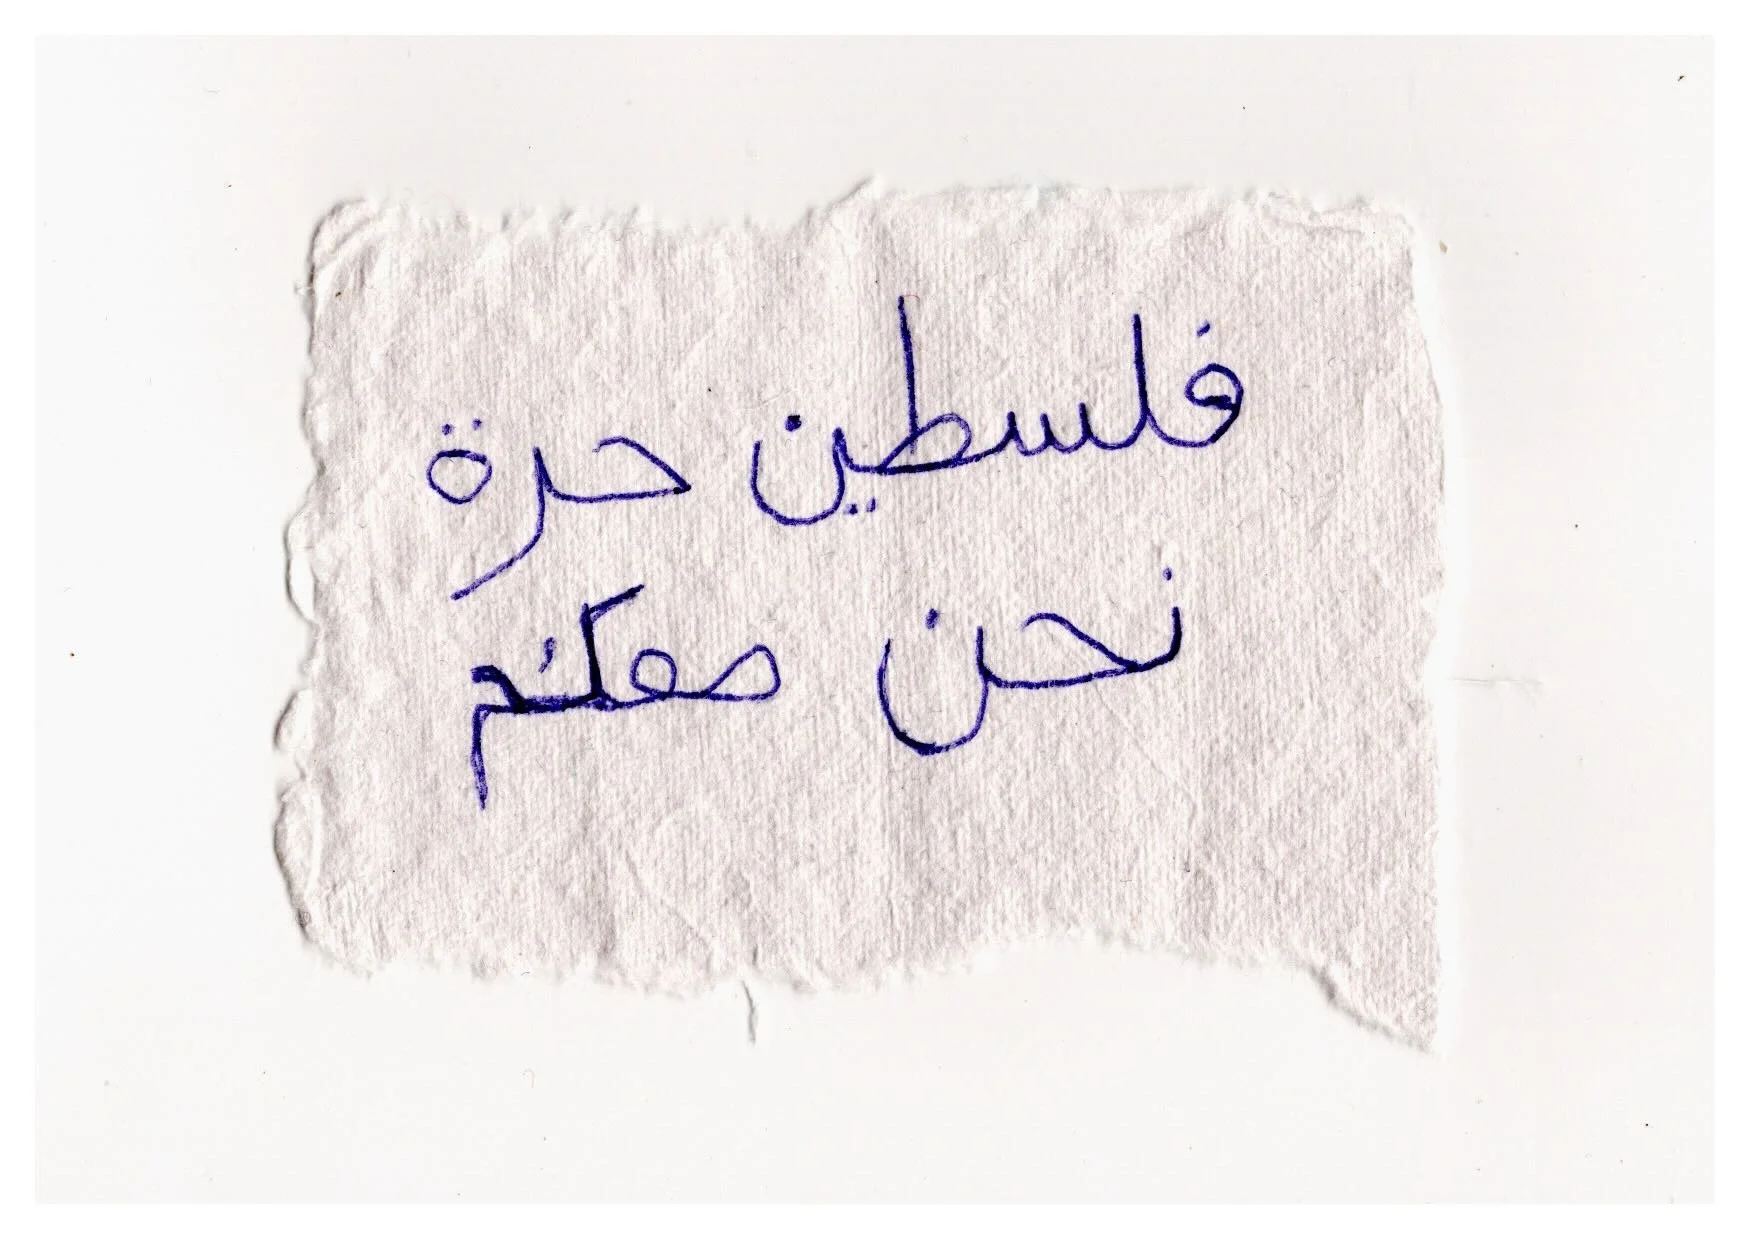 فلسطين حرة
نحن معكم